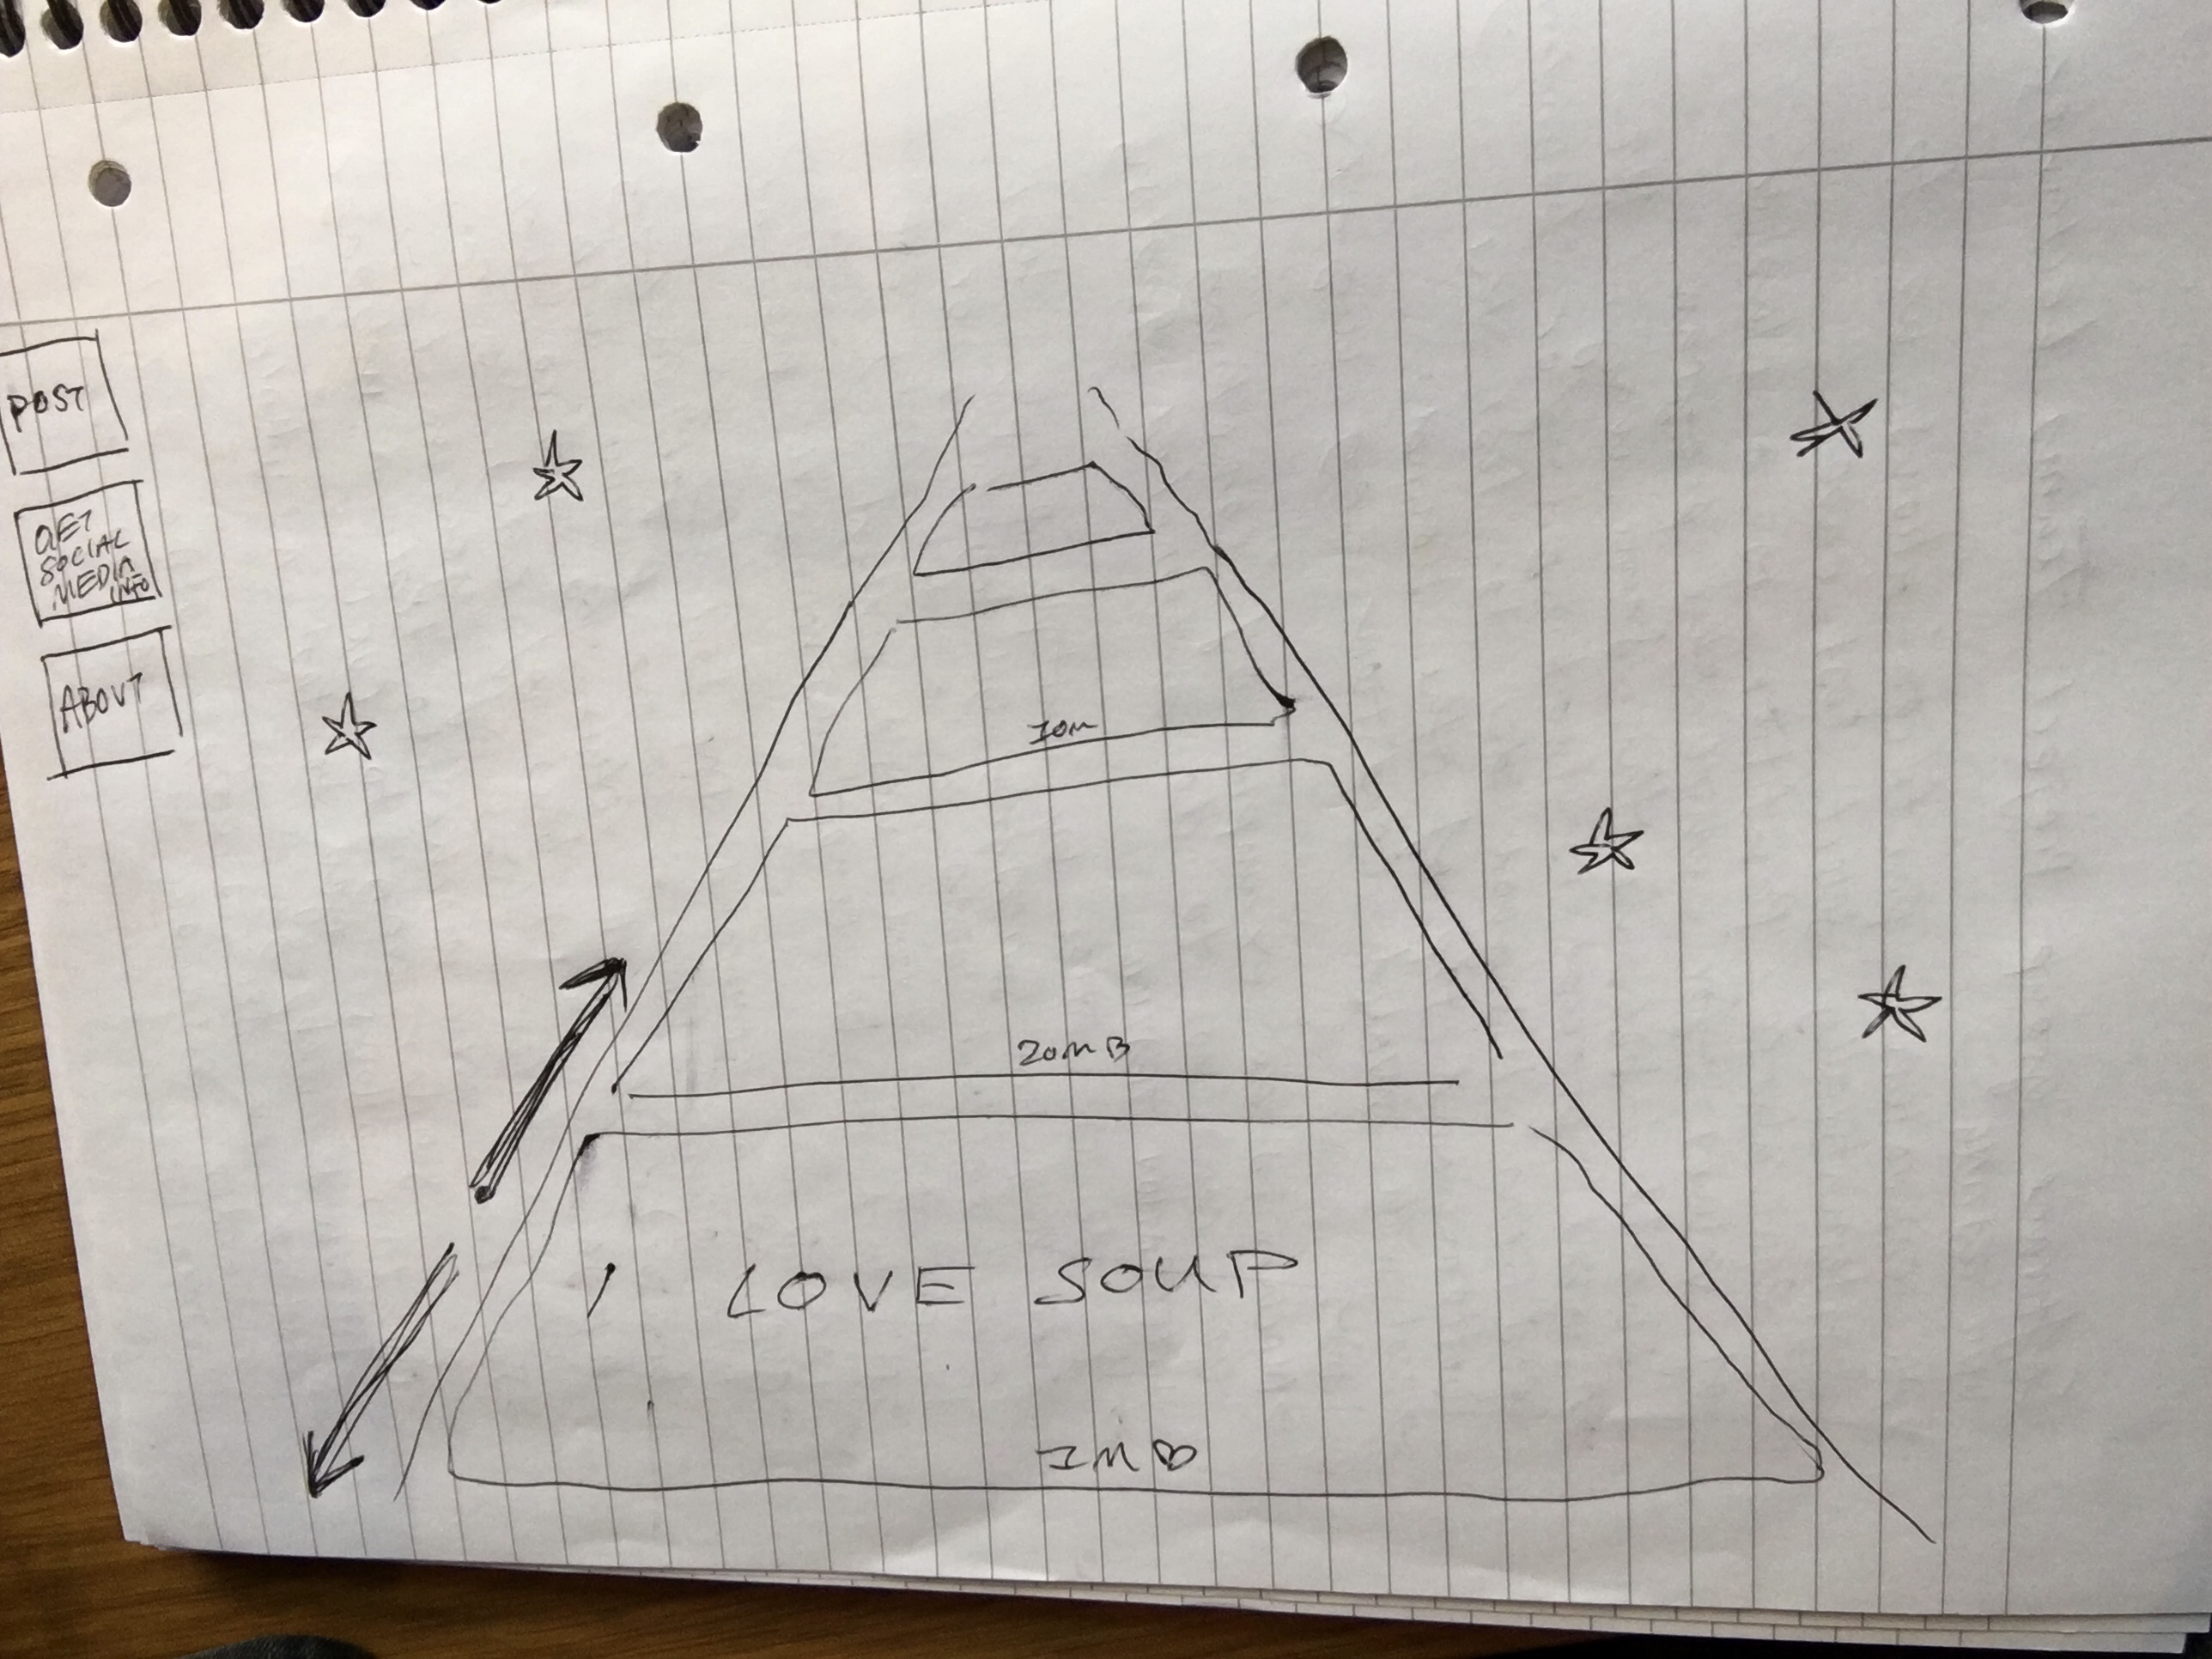 POST
GET
SOCIAL
MEDIA
INFO
ABOUT
20MB
I LOVE SOUP